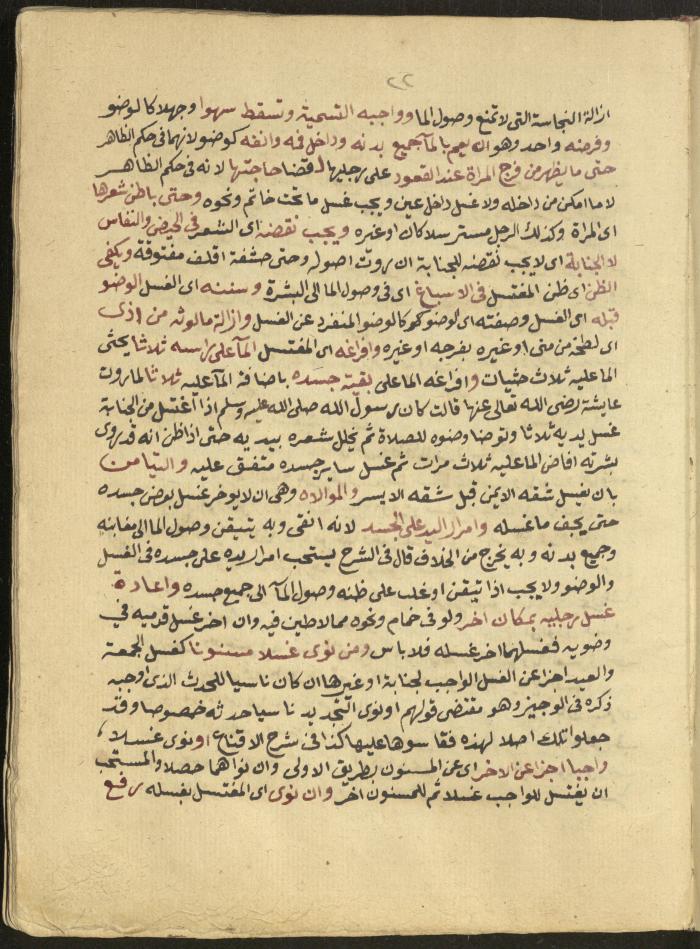 ٢٢
ازالة النجاسة التى لا تمنع وصول الما وواجبه التسمية وتسقط سهوا وجهلا كالوضو
وفرضه واحد وهو ان يعم بالمآ جميع بدنه وداخل فمه وانفه كوضو لانهما فى حكم الظاهر
حتى ما يظهر من فرج المراة عند القعود على رجليها لـقضا حاجتها لانه فى حكم الظاهر
لا ما امكن من داخله ولا غسل داخل عين ويجب غسل ما تحت خاتم ونحوه وحتى باطن شعرها
اى المراة وكذلك الرجل مسترسلا كان او غيره ويجب نقضه اى الشعر فى الحيض والنفاس
لا الجنابة اى لا يجب نقضه للجنابة ان روت اصوله وحتى حشفة اقلف مفتوقة ويكفى
الظن اى ظن المغتسل فى الاسباغ اى فى وصول الما الى البشرة وسننه اى الغسل الوضو
قبله اى الغسل وصفته اى الوضو كهو كالوضو المنفرد عن الغسل وازالة ما لوثه من اذى
اى لطخه من منى او غيره بفرجه او غيره وافراغه اى المغتسل المآ على راسه ثلاثا يحثى
الما عليه ثلاث حثيات وافراغه الما على بقية جسده باضافة المآ عليه ثلاثا لما روت
عايشة رضى الله تعالى عنها قالت كان رسول الله صلى الله عليه وسلم اذا اغتسل من الجنابة
غسل يديه ثلاثا وتوضا وضوه للصلاة ثم يخلل شعره بيديه حتى اذا ظن انه قد روى
بشرته افاض الما عليه ثلاث مرات ثم غسل ساير جسده متفق عليه والتيامن
بان يغسل شقه الايمن قبل شقه الايسر والموالاه وهى ان لا يوخر غسل بعض جسده
حتى يجف ما غسله وامرار اليد على الجسد لانه انقى وبه يتيقن وصول الما الى مغابنه
وجميع بدنه وبه يخرج من الخلاف قال فى الشرح يستحب امرار يده على جسده فى الغسل
والوضو ولا يجب اذا تيقن او غلب على ظنه وصول المآ الى جميع جسده واعادة
غسل رجليه بمكان اخر ولو فى حمام ونحوه مما لا طين فيه وان اخر غسل قدميه فى
وضويه فغسلهما اخر غسله فلا باس ومن نوى غسلا مسنونا كغسل الجمعة
والعيد اجزا عن الغسل الواجب لجنابة او غيرها ان كان ناسيا للحدث الذى اوجبه
ذكره فى الوجيز وهو مقتضى قولهم او نوى التجديد ناسيا حدثه خصوصا وقد
جعلوا تلك اصلا لهذه فقاسوها عليها كذا فى شرح الاقناع او نوى غسلا
واجبا اجزا عن الاخر اى عن المسنون بطريق الاولى وان نواهما حصلا والمستحب
ان يغتسل للواجب غسلا ثم للمسنون اخر وان نوى اى المغتسل بغسله رفع